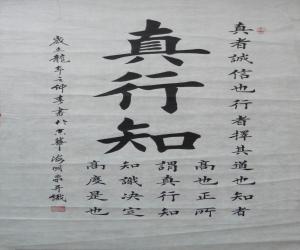 真行知
真者誠信也行者擇其道也知者
高也正所
謂真行知
知識決定
高度是也
歲在龍年之仲書於京華